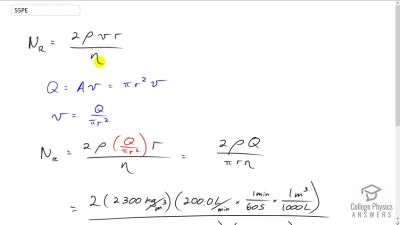 55PE
N_R = 2ρvr / η
Q = Av = πr²v
v = Q / πr²
N_R = 2ρ(Q/πr²)r / η = 2ρQ / πrη
= 2(2300 kg/m³)(200.0 L/min × 1min/60s × 1m³/1000L)
College Physics
ANSWERS